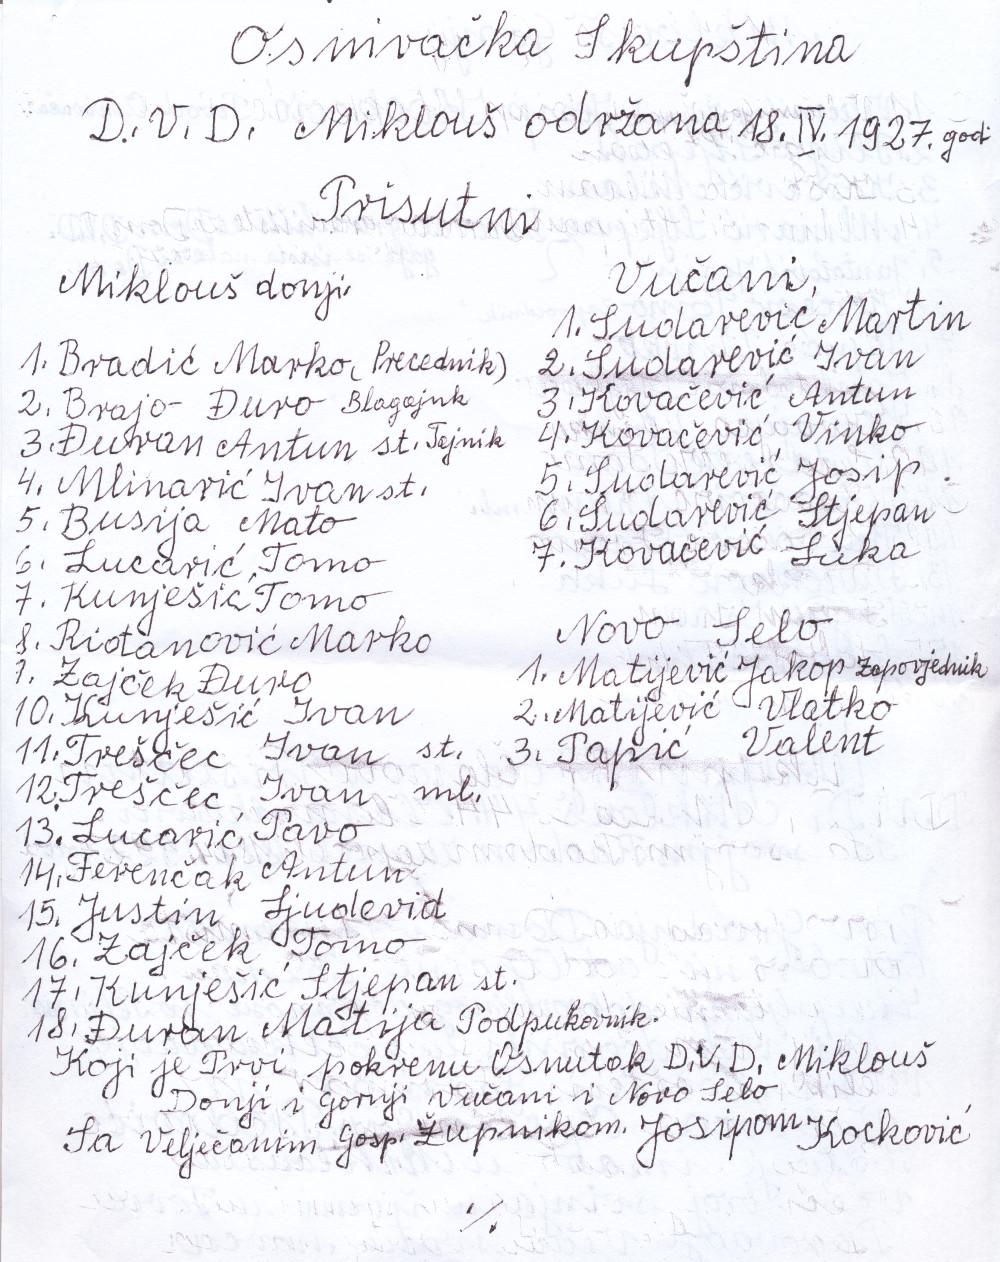 Osnivačka Skupština
D.V.D. Miklouš održana 18. IV. 1927. god
Prisutni
Miklouš donji.
1. Bradić Marko (Precednik)
2. Brajo- Đuro Blagajnk
3. Đuran Antun st. Tajnik
4. Mlinarić Ivan st.
5. Busija Mato
6. Lucarić Tomo
7. Kunješić Tomo
8. Ridanović Marko
9. Zajček Đuro
10. Kunješić Ivan
11. Treščec Ivan st.
12. Treščec Ivan ml.
13. Lucarić Pavo
14. Ferenčak Antun
15. Justin Ljudevid
16. Zajček Tomo
17. Kunješić Stjepan st.
18. Đuran Matija Podpukovnik.
Vučani,
1. Sudarević Martin
2. Sudarević Ivan
3. Kovačević Antun
4. Kovačević Vinko
5. Sudarević Josip.
6. Sudarević Stjepan
7. Kovačević Luka
Novo Selo
1. Matijević Jakop Zapovjednik
2. Matijević Vlatko
3. Papić Valent
Koji je Prvi pokrenu Osnutak D.V.D. Miklouš
Donji i Gornji Vučani i Novo Selo
Sa Veljećanim Gosp. Župnikom. Josipom Kočković